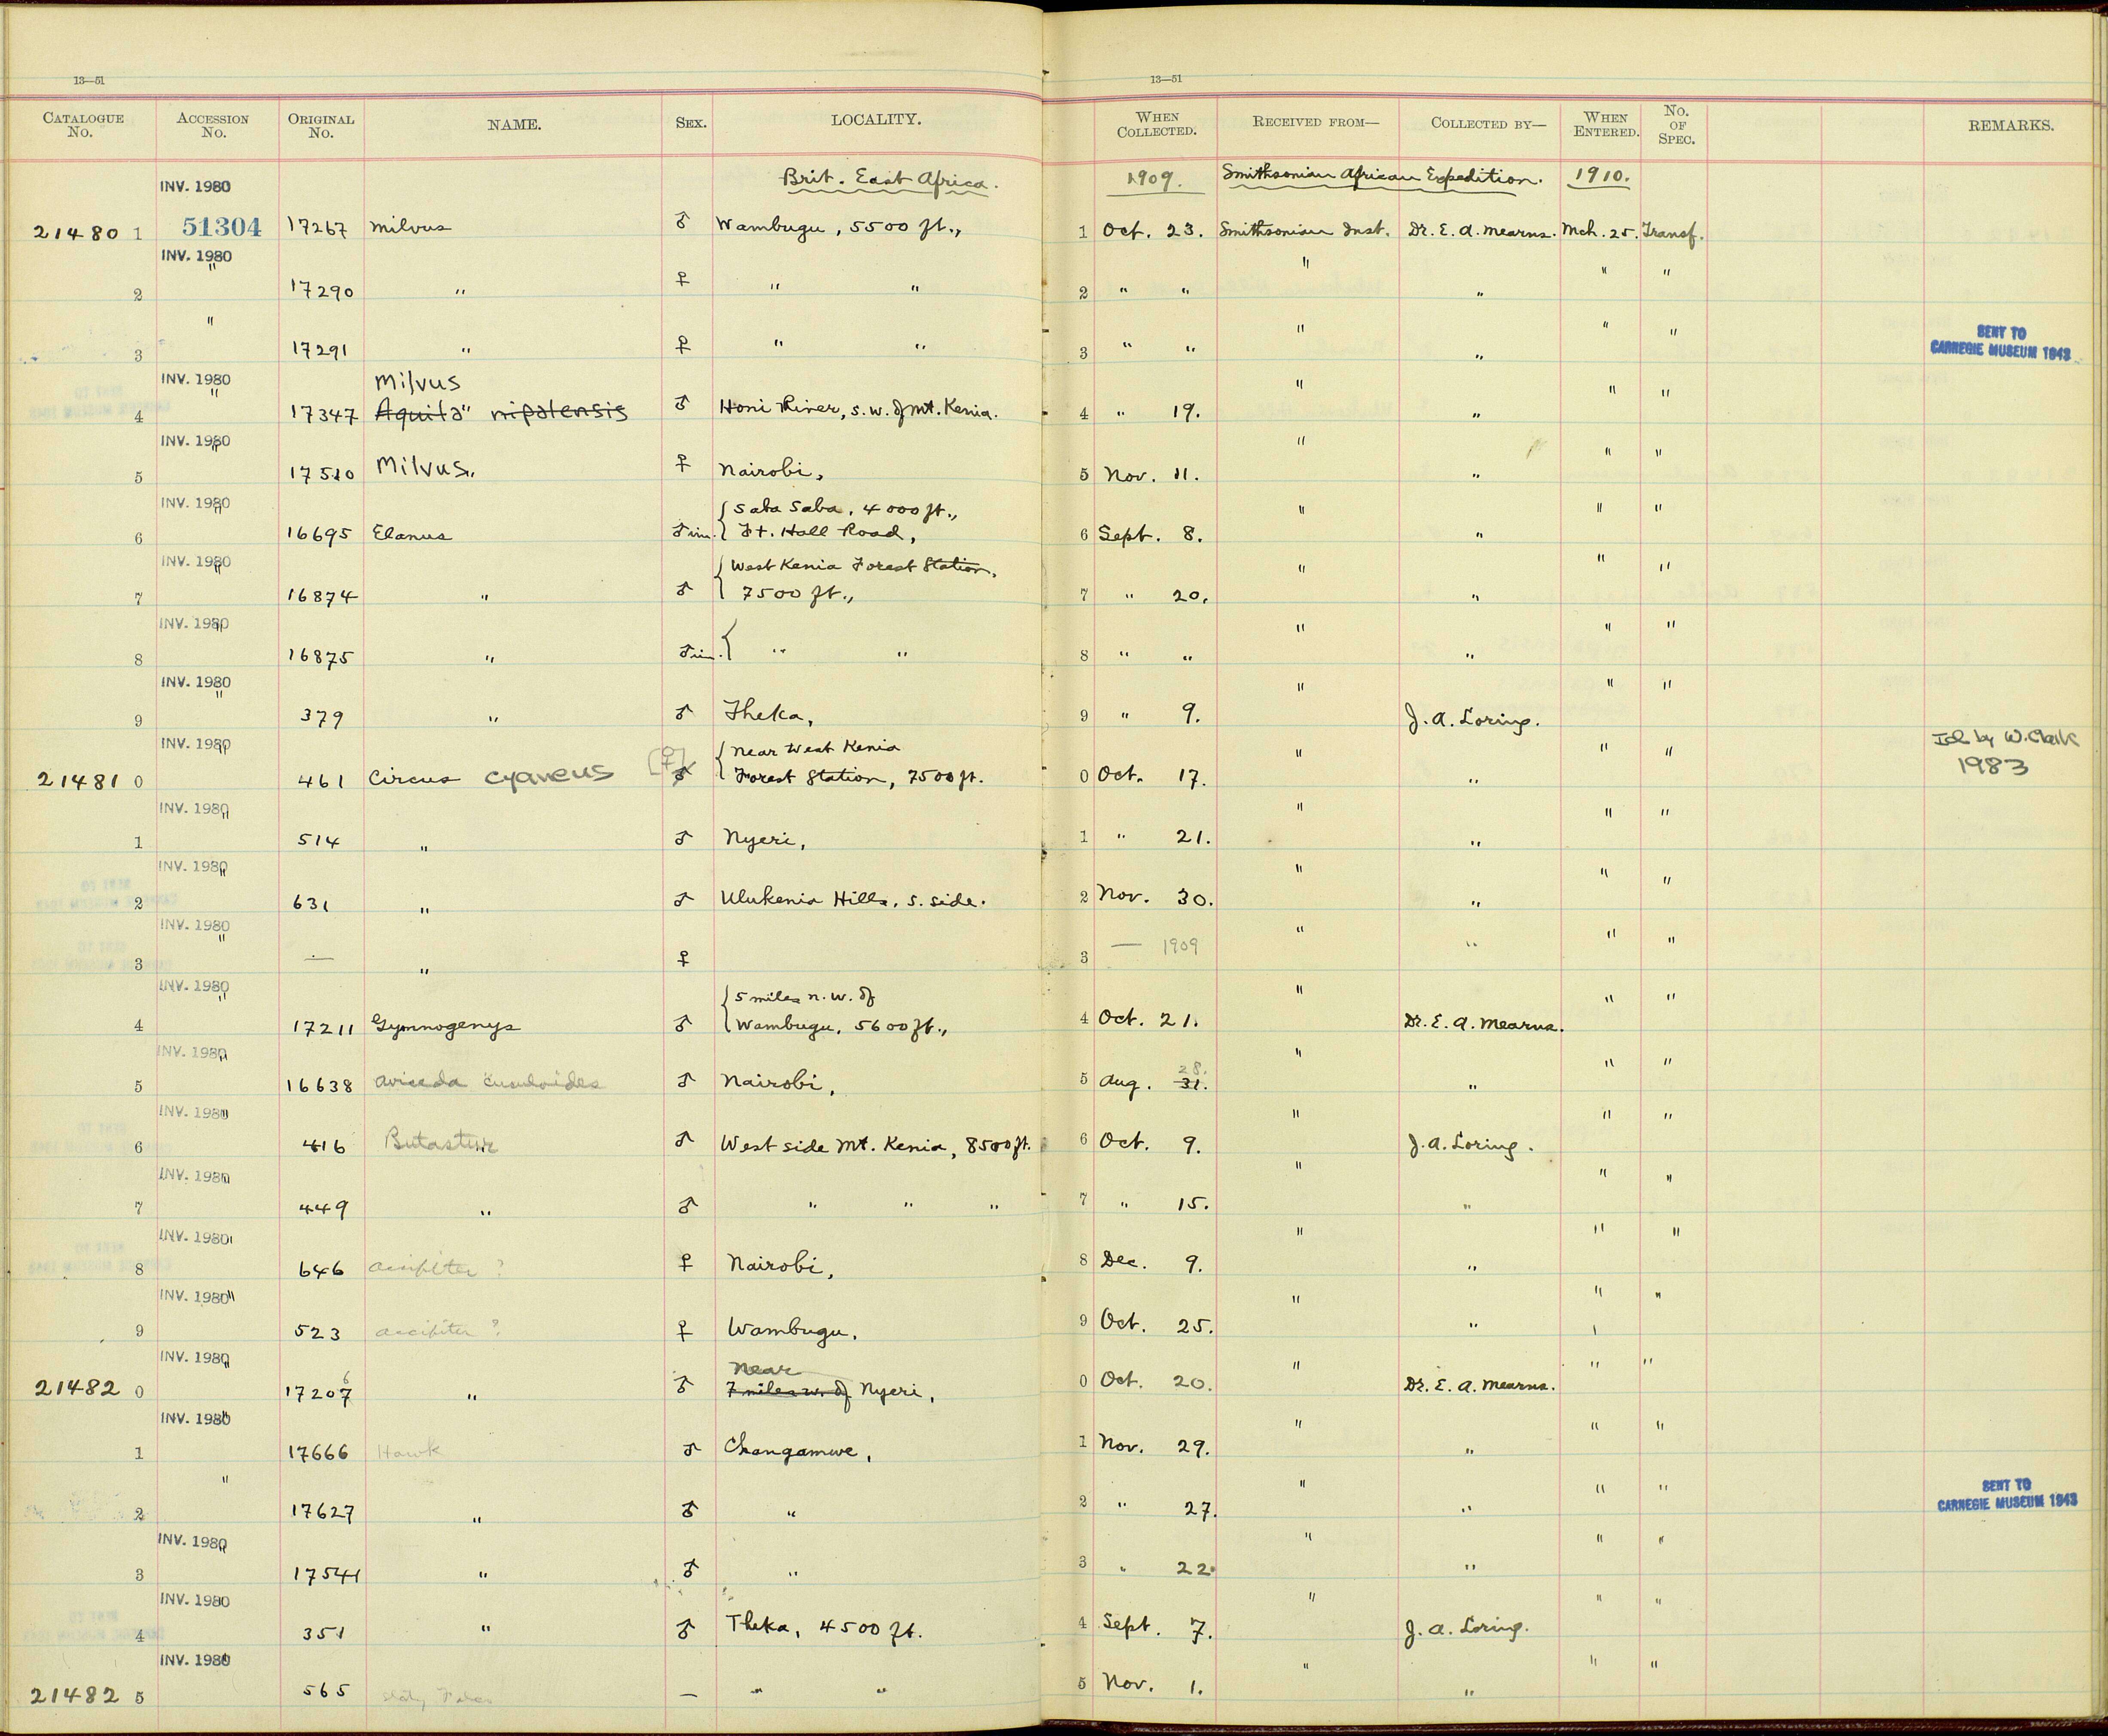 13—51
13—51
CATALOGUE No. ACCESSION No. ORIGINAL No. NAME. SEX. LOCALITY. WHEN COLLECTED. RECEIVED FROM— COLLECTED BY— WHEN ENTERED. No. OF SPEC. REMARKS.
INV. 1980 Brit. East Africa. 1909. Smithsonian African Expedition. 1910.
21480 1 51304 17267 Milvus ♂ Wambugu, 5500 ft., 1 Oct. 23. Smithsonian Inst. Dr. E. A. Mearns. Mch. 25. Transf.
INV. 1980
2 " 17290 " ♀ " " 2 " " " " " "
3 " 17291 " ♀ " " 3 " " " " " " SENT TO CARNEGIE MUSEUM 1943
INV. 1980 Milvus
4 " 17347 Aquila " nipalensis ♂ Honi River, s.w. of Mt. Kenia. 4 " 19. " " " "
INV. 1980
5 " 17510 Milvus " ♀ Nairobi, 5 Nov. 11. " " " "
INV. 1980 { Saba Saba, 4000 ft.,
6 " 16695 Elanus ♂ im. Ft. Hall Road, 6 Sept. 8. " " " "
INV. 1980 { West Kenia Forest Station,
7 " 16874 " ♂ 7500 ft., 7 " 20. " " " "
INV. 1980
8 " 16875 " ♂ im. { " " 8 " " " " " "
INV. 1980
9 " 379 " ♂ Theka, 9 " 9. " J. A. Loring. " "
INV. 1980 [♀] { Near West Kenia Id. by W. Clark
21481 0 " 461 Circus cyaneus ♂ Forest Station, 7500 ft. 0 Oct. 17. " " " " 1983
INV. 1980
1 " 514 " ♂ Nyeri, 1 " 21. " " " "
INV. 1980
2 " 631 " ♂ Ulukenia Hills, s. side. 2 Nov. 30. " " " "
INV. 1980
3 " — " ♀ 3 — 1909 " " " "
INV. 1980 { 5 miles n.w. of
4 " 17211 Gymnogenys ♂ Wambugu, 5600 ft., 4 Oct. 21. " Dr. E. A. Mearns. " "
INV. 1980 28.
5 " 16638 Aviceda cuculoides ♂ Nairobi, 5 Aug. 31. " " " "
INV. 1980
6 " 416 Butastur ♂ West side Mt. Kenia, 8500 ft. 6 Oct. 9. " J. A. Loring. " "
INV. 1980
7 " 449 " ♂ " " " 7 " 15. " " " "
INV. 1980
8 " 646 Accipiter ? ♀ Nairobi, 8 Dec. 9. " " " "
INV. 1980
9 " 523 Accipiter ? ♀ Wambugu, 9 Oct. 25. " " " "
INV. 1980 6 Near
21482 0 " 17207 " ♂ 7 miles w. of Nyeri, 0 Oct. 20. " Dr. E. A. Mearns. " "
INV. 1980
1 " 17666 Hawk ♂ Changamwe, 1 Nov. 29. " " " "
2 " 17627 " ♂ " 2 " 27. " " " " SENT TO CARNEGIE MUSEUM 1943
INV. 1980
3 " 17541 " ♂ " 3 " 22. " " " "
INV. 1980
4 351 " ♂ Theka, 4500 ft. 4 Sept. 7. " J. A. Loring. " "
INV. 1980
21482 5 565 — " " 5 Nov. 1. " " " "